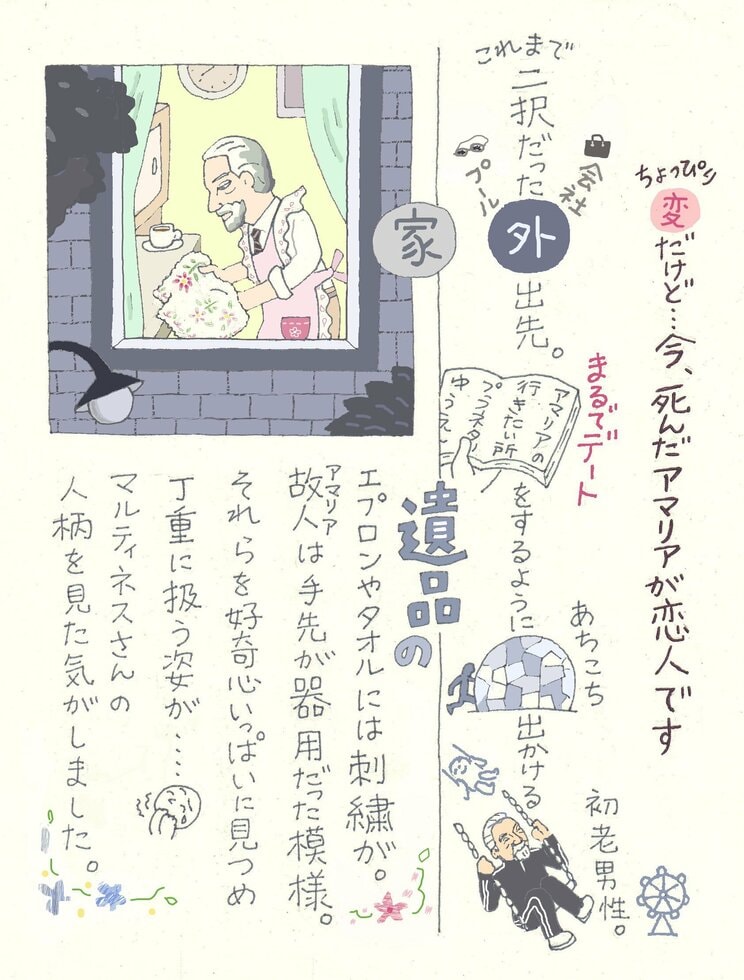 ちょっぴり
変だけど…今、死んだアマリアが恋人です
これまで
二択だった外出先。
会社
プール
まるでデート
アマリアの
行きたい所
プラネタリ
ゆうえ
をするように
あちこち
出かける
初老男性。
家
遺品の
エプロンやタオルには刺繍が。
アマリア
故人は手先が器用だった模様。
それらを好奇心いっぱいに見つめ
丁重に扱う姿が……
マルティネスさんの
人柄を見た気がしました。